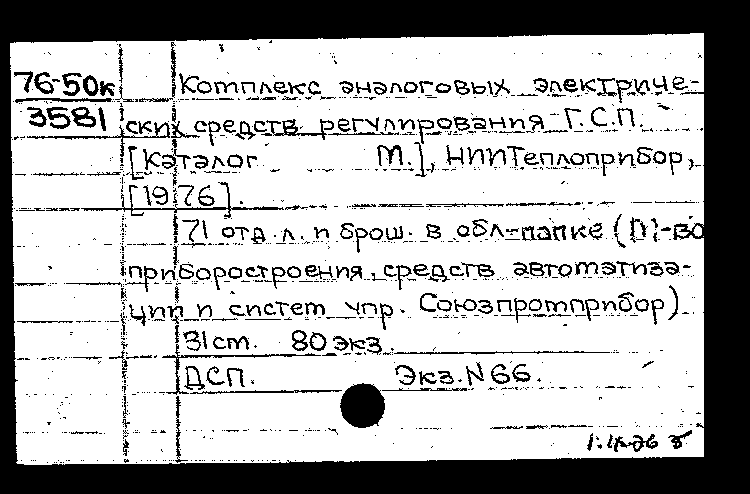 76-50к Комплекс аналоговых электриче-
3581 ских средств регулирования Г.С.П.
[Каталог М.], НИИТеплоприбор,
[1976].
71 отд. л. и брош. в обл-папке (М-во
приборостроения, средств автоматиза-
ции и систем упр. Союзпромприбор)
31 см. 80 экз.
ДСП. Экз. N 66.